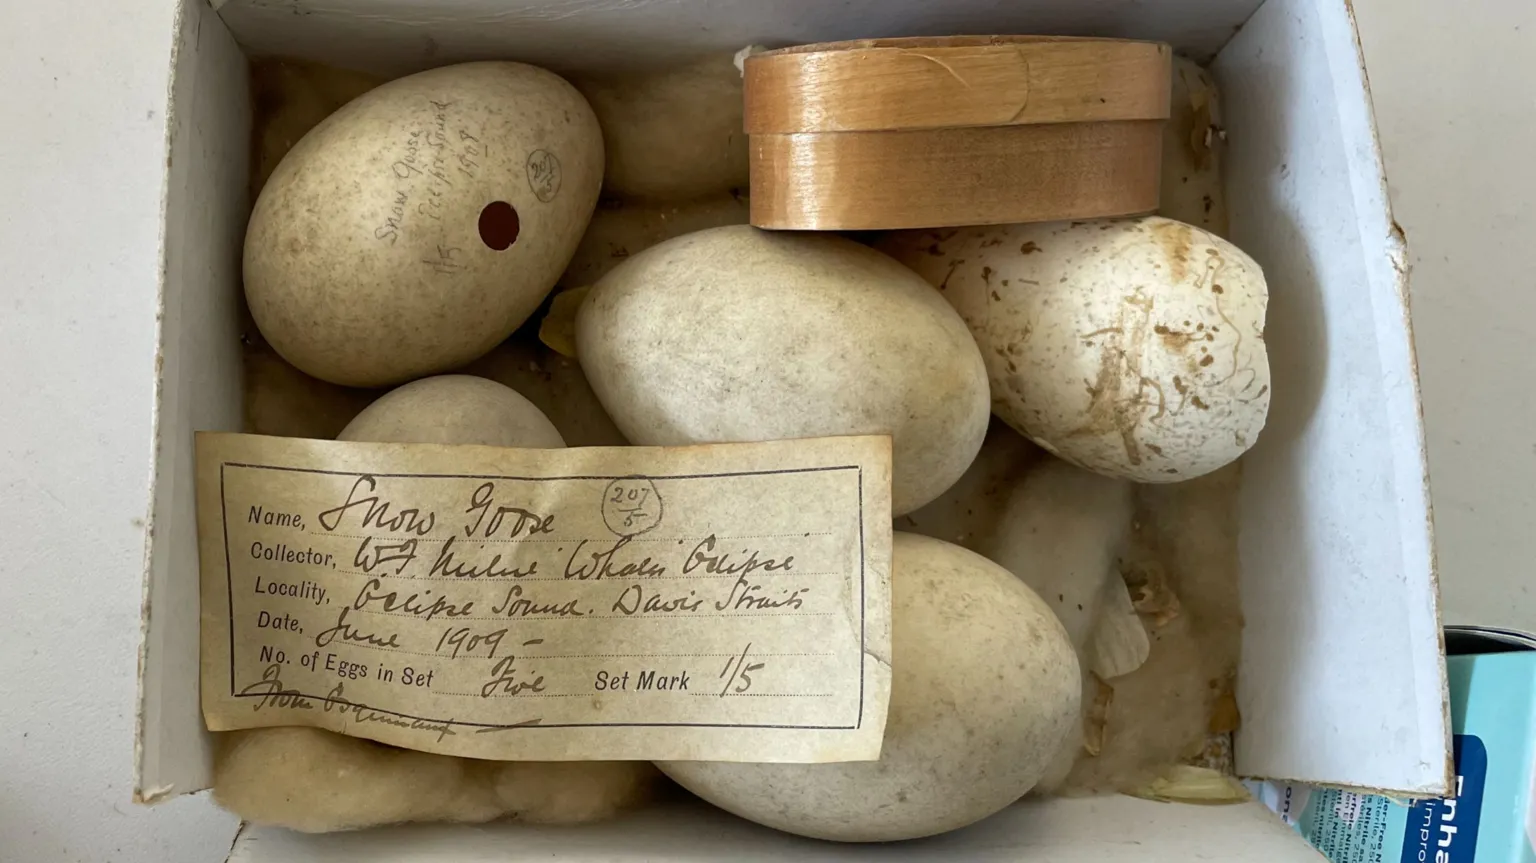 Snow Goose
Eclipse Sound
1908
1/5
207
Name, Snow Goose
207/5
Collector, W F Milne Whaler Eclipse
Locality, Eclipse Sound. Davis Straits
Date, June 1909 -
No. of Eggs in Set Five Set Mark 1/5
From
Enha
impro